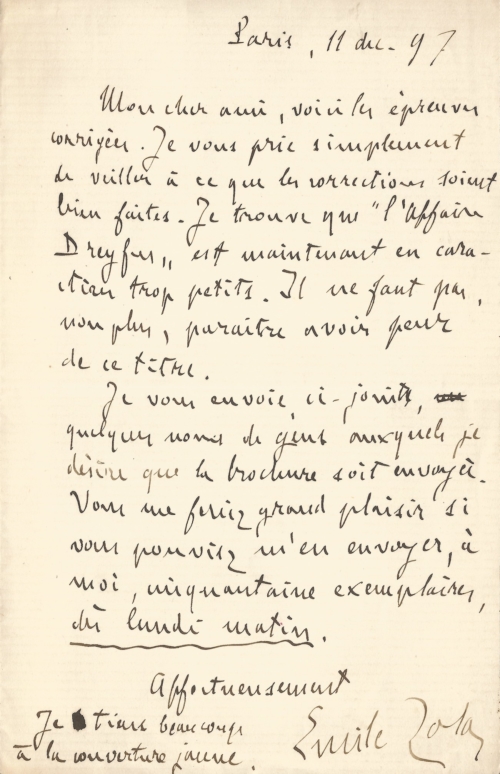 Paris, 11 déc. 97
Mon cher ami, voici les épreuves
corrigées. Je vous prie simplement
de veiller à ce que les corrections soient
bien faites. Je trouve que "l'Affaire
Dreyfus" est maintenant en cara-
ctères trop petits. Il ne faut pas,
non plus, paraître avoir peur
de ce titre.
Je vous envoie, ci-joints,
quelques noms de gens auxquels je
désire que la brochure soit envoyée.
Vous me feriez grand plaisir si
vous pouviez m'en envoyer, à
moi, cinquantaine exemplaires,
dès lundi matin.
Affectueusement
Je tiens beaucoup
à la couverture jaune.
Emile Zola